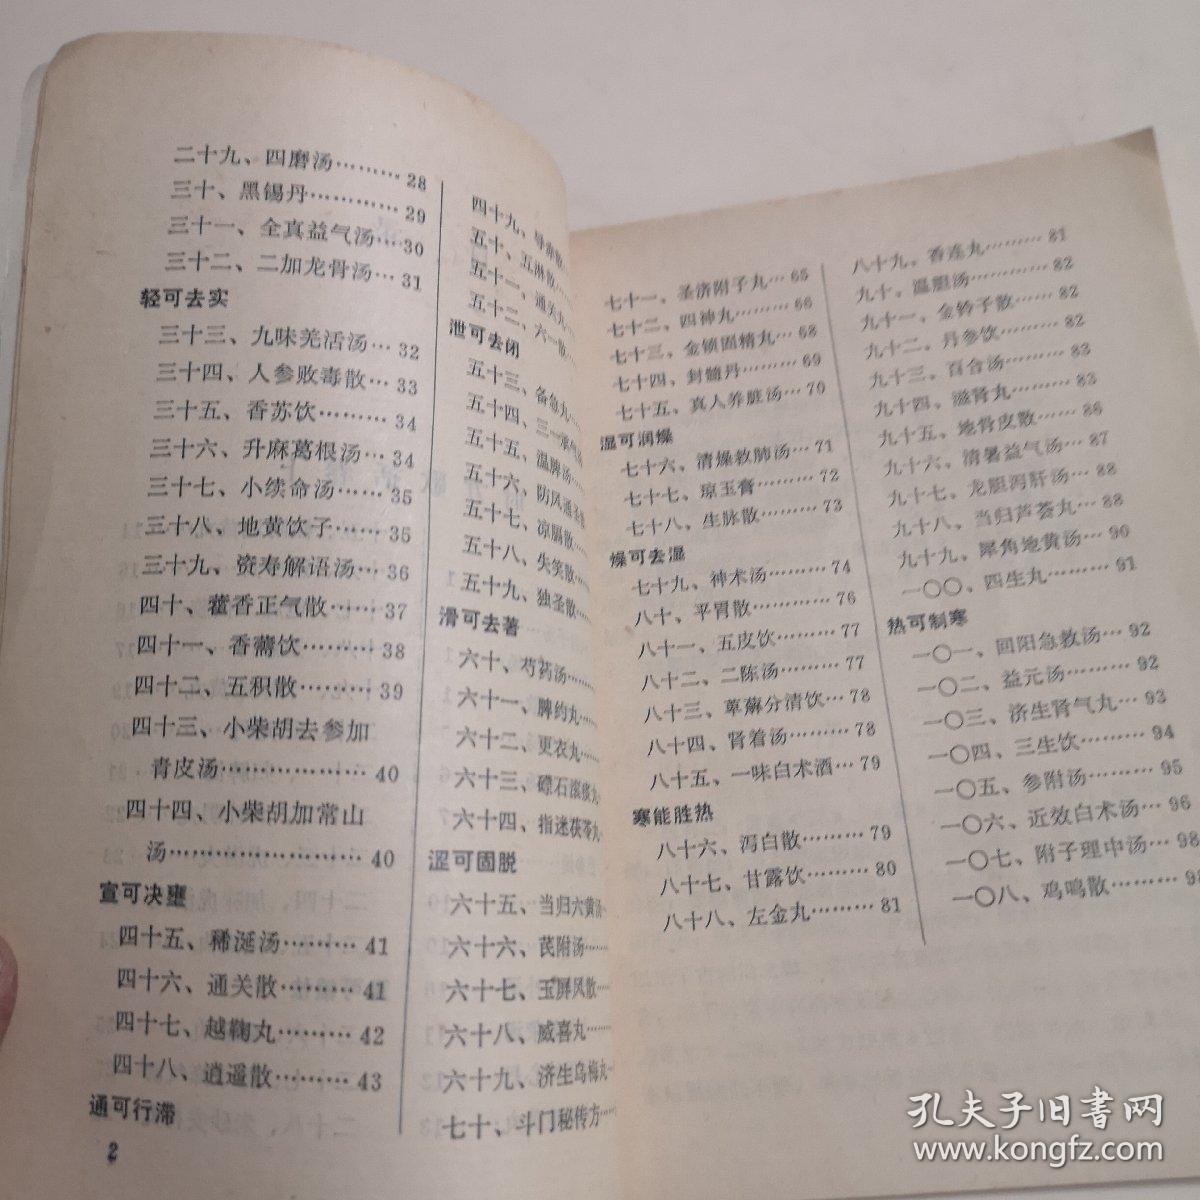 二十九、四磨汤………28
三十、黑锡丹…………29
三十一、全真益气汤…30
三十二、二加龙骨汤…31
轻可去实
三十三、九味羌活汤…32
三十四、人参败毒散…33
三十五、香苏饮………34
三十六、升麻葛根汤…34
三十七、小续命汤……35
三十八、地黄饮子……35
三十九、资寿解语汤…36
四十、藿香正气散……37
四十一、香薷饮………38
四十二、五积散………39
四十三、小柴胡去参加
青皮汤………………40
四十四、小柴胡加常山
汤……………………40
宣可决壅
四十五、稀涎汤………41
四十六、通关散………41
四十七、越鞠丸………42
四十八、逍遥散………43
通可行滞
2
四十九、导赤散
五十、五淋散…
五十一、通关丸
五十二、六一散
泄可去闭
五十三、备急丸…
五十四、三一承气
五十五、温脾汤…
五十六、防风通圣散
五十七、凉膈散…
五十八、失笑散…
五十九、独圣散…
滑可去著
六十、芍药汤……
六十一、脾约丸…
六十二、更衣丸…
六十三、礞石滚痰丸
六十四、指迷茯苓丸
涩可固脱
六十五、当归六黄汤
六十六、芪附汤……
六十七、玉屏风散…
六十八、威喜丸……
六十九、济生乌梅丸
七十、斗门秘传方…
七十一、圣济附子丸…65
七十二、四神丸………66
七十三、金锁固精丸…68
七十四、封髓丹………69
七十五、真人养脏汤…70
湿可润燥
七十六、清燥救肺汤…71
七十七、琼玉膏………72
七十八、生脉散………73
燥可去湿
七十九、神术汤………74
八十、平胃散…………76
八十一、五皮饮………77
八十二、二陈汤………77
八十三、萆薢分清饮…78
八十四、肾着汤………78
八十五、一味白术酒…79
寒能胜热
八十六、泻白散………79
八十七、甘露饮………80
八十八、左金丸………81
八十九、香连丸………81
九十、温胆汤…………82
九十一、金铃子散……82
九十二、丹参饮………82
九十三、百合汤………83
九十四、滋肾丸………83
九十五、地骨皮散……86
九十六、清暑益气汤…87
九十七、龙胆泻肝汤…88
九十八、当归芦荟丸…88
九十九、犀角地黄汤…90
一〇〇、四生丸………91
热可制寒
一〇一、回阳急救汤…92
一〇二、益元汤………92
一〇三、济生肾气丸…93
一〇四、三生饮………94
一〇五、参附汤………95
一〇六、近效白术汤…96
一〇七、附子理中汤…98
一〇八、鸡鸣散………
孔夫子旧书网
www.kongfz.com